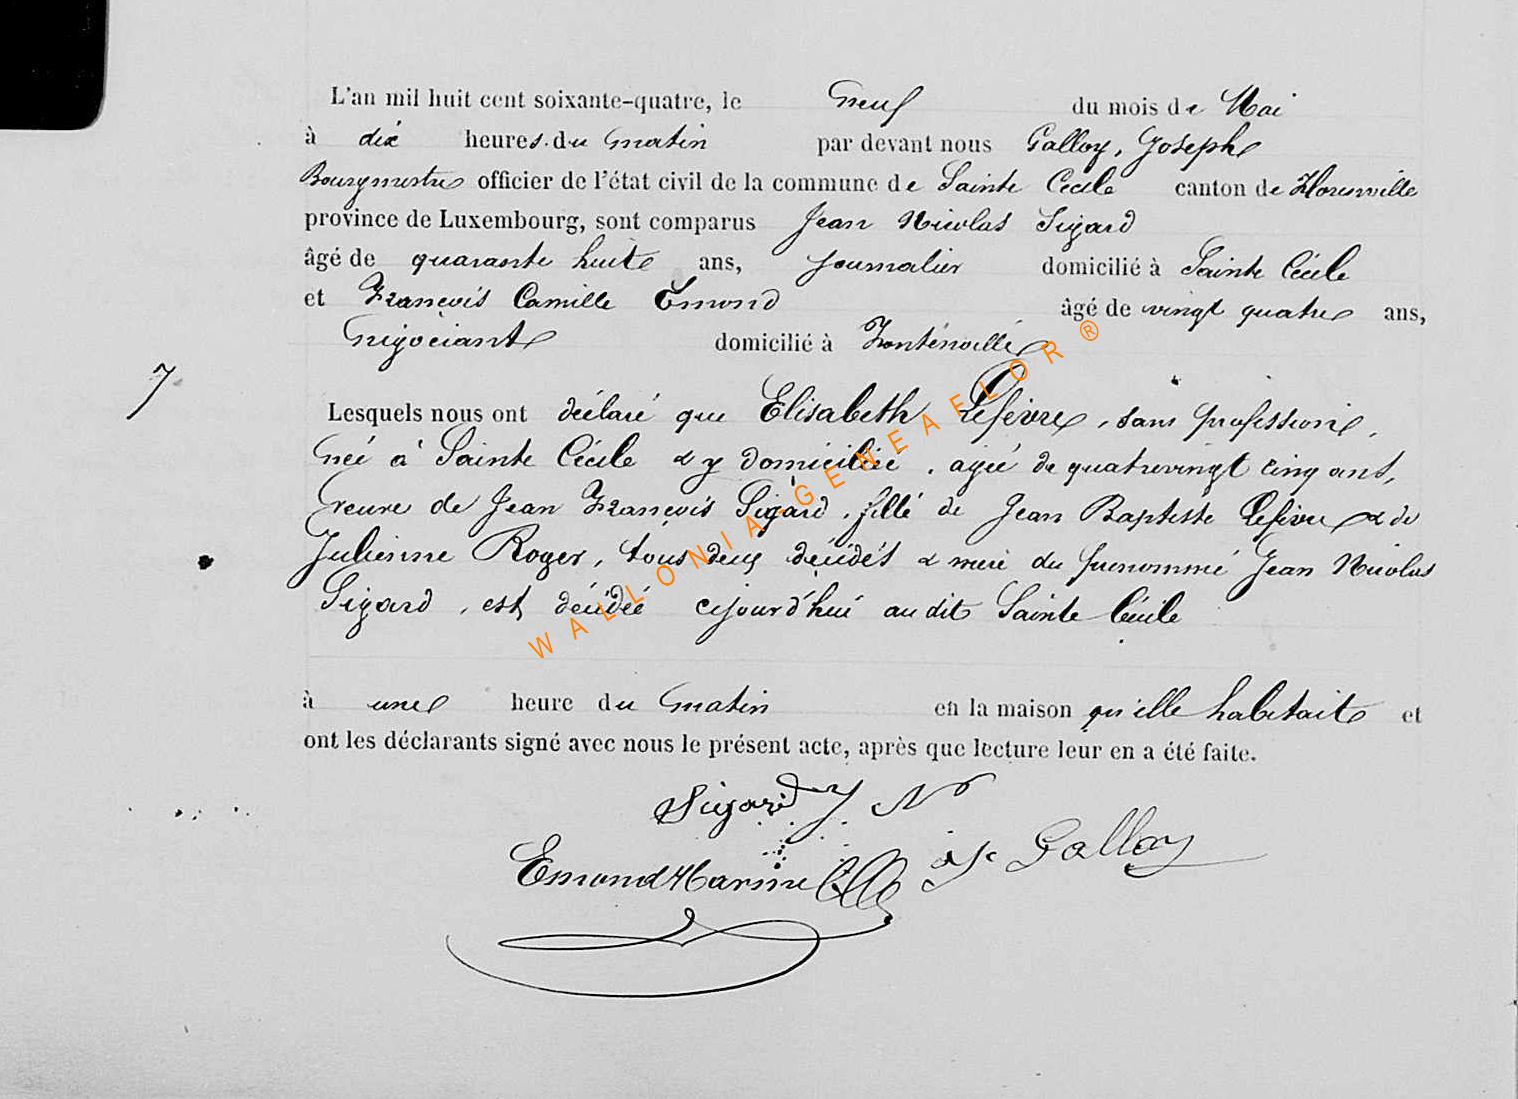 L'an mil huit cent soixante-quatre, le neuf du mois de Mai
à dix heures du matin par devant nous Galloy, Joseph
Bourgmestre officier de l'état civil de la commune de Sainte Cécile canton de Florenville
province de Luxembourg, sont comparus Jean Nicolas Sigard
âgé de quarante huit ans, journalier domicilié à Sainte Cécile
et François Camille Emond âgé de vingt quatre ans,
négociant domicilié à Fontenoille
7
Lesquels nous ont déclaré que Elisabeth Lefèvre, sans profession,
née à Sainte Cécile & y domiciliée, agée de quatrevingt cinq ans,
veuve de Jean François Sigard, fille de Jean Baptiste Lefèvre & de
Julienne Roger, tous deux décédés & mère du prénommé Jean Nicolas
Sigard, est décédée cejourd'hui audit Sainte Cécile
à une heure du matin en la maison qu'elle habitait et
ont les déclarants signé avec nous le présent acte, après que lecture leur en a été faite.
Sigard J N
Emond J. Galloy
WALLONIA-GENEAFLOR®